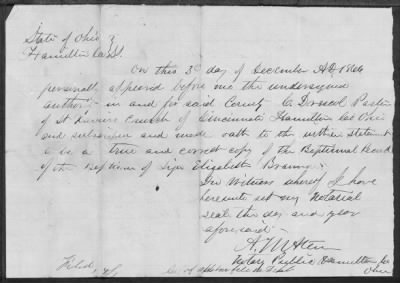 State of Ohio }
Hamilton Co. SS.
On this 3d day of December A.D. 186
personally appeared before me the undersigned
authority in and for said County C. Driscol Pastor
of St Church of Cincinnati Hamilton Co Ohio
and subscribed and made oath to the within statement
to be a true and correct copy of the Baptismal Record
of the Baptism of Elizabeth
In Witness whereof I have
hereunto set my Notarial
seal the day and year
aforesaid
Notary Public Hamilton Co
Ohio
Filed